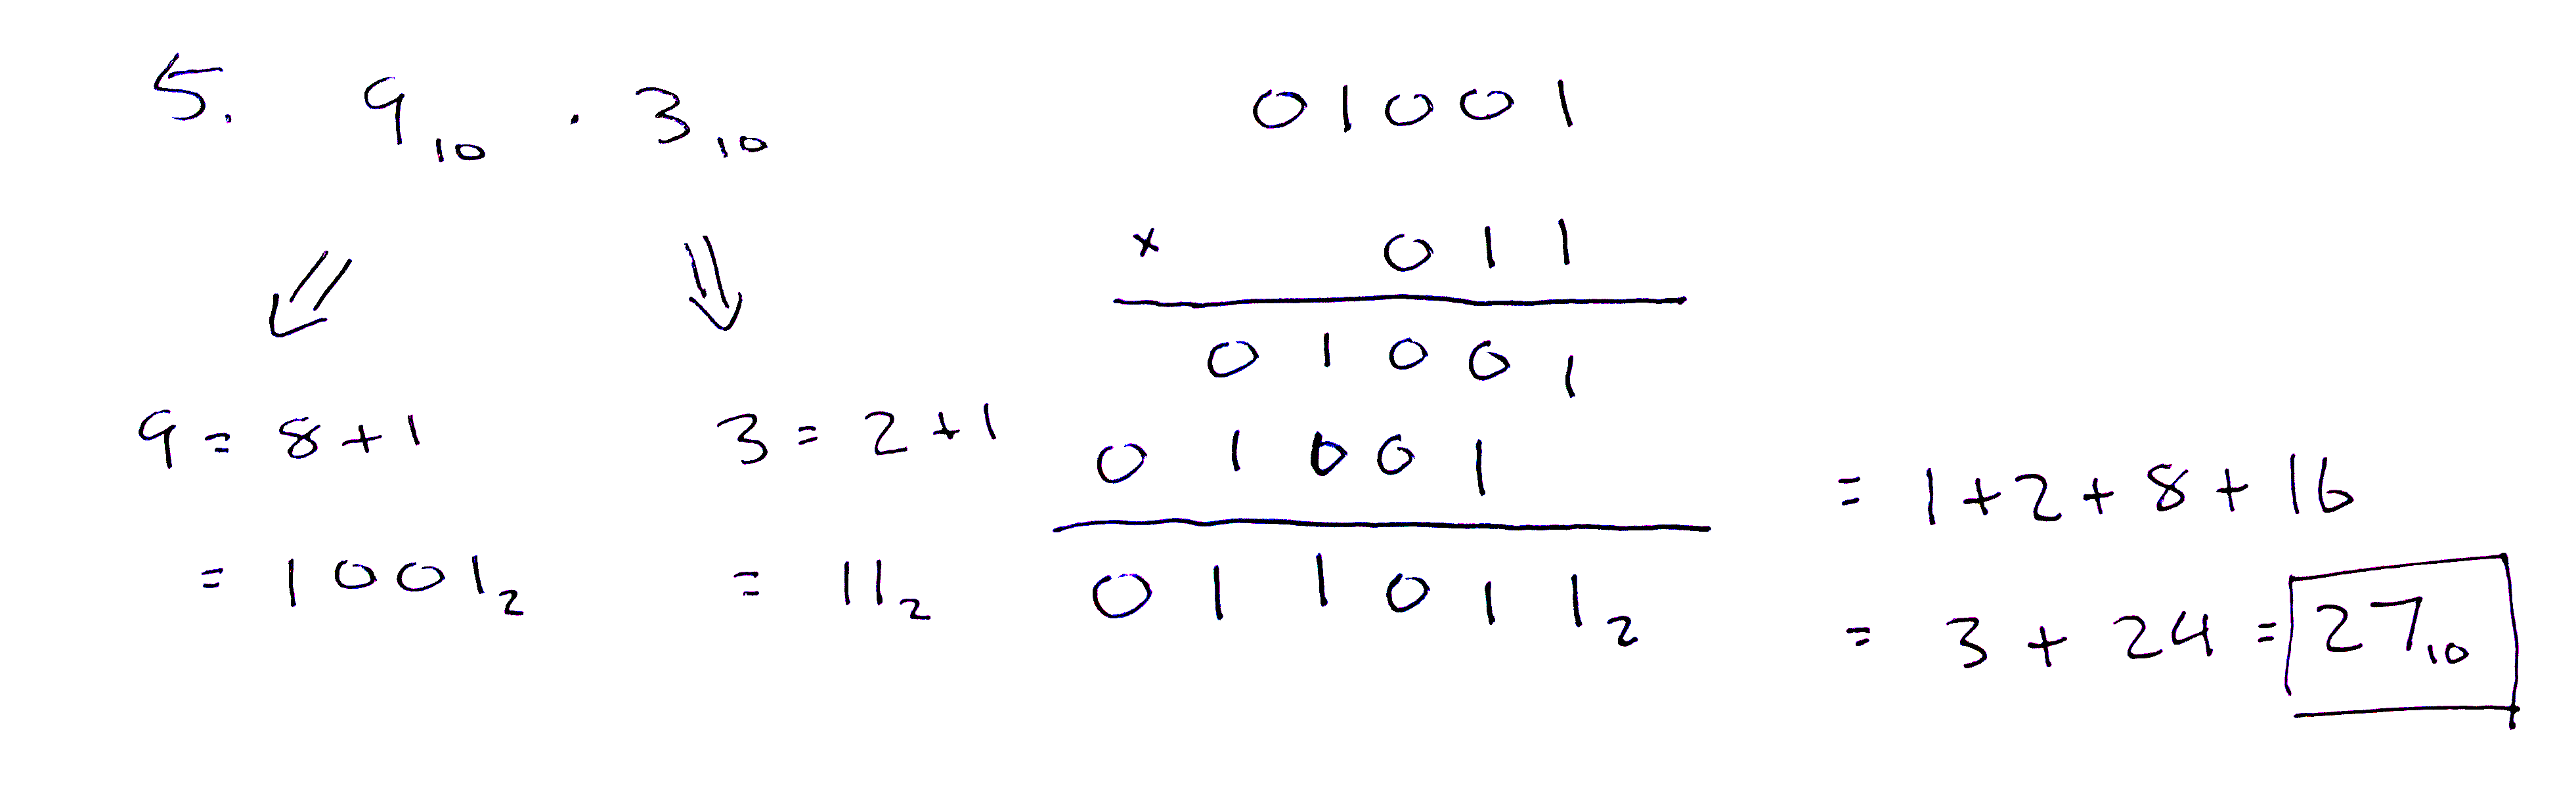 5. 9₁₀ · 3₁₀
9 = 8 + 1
= 1001₂
3 = 2 + 1
= 11₂
01001
× 011
01001
01001
011011₂
= 1 + 2 + 8 + 16
= 3 + 24 = 27₁₀